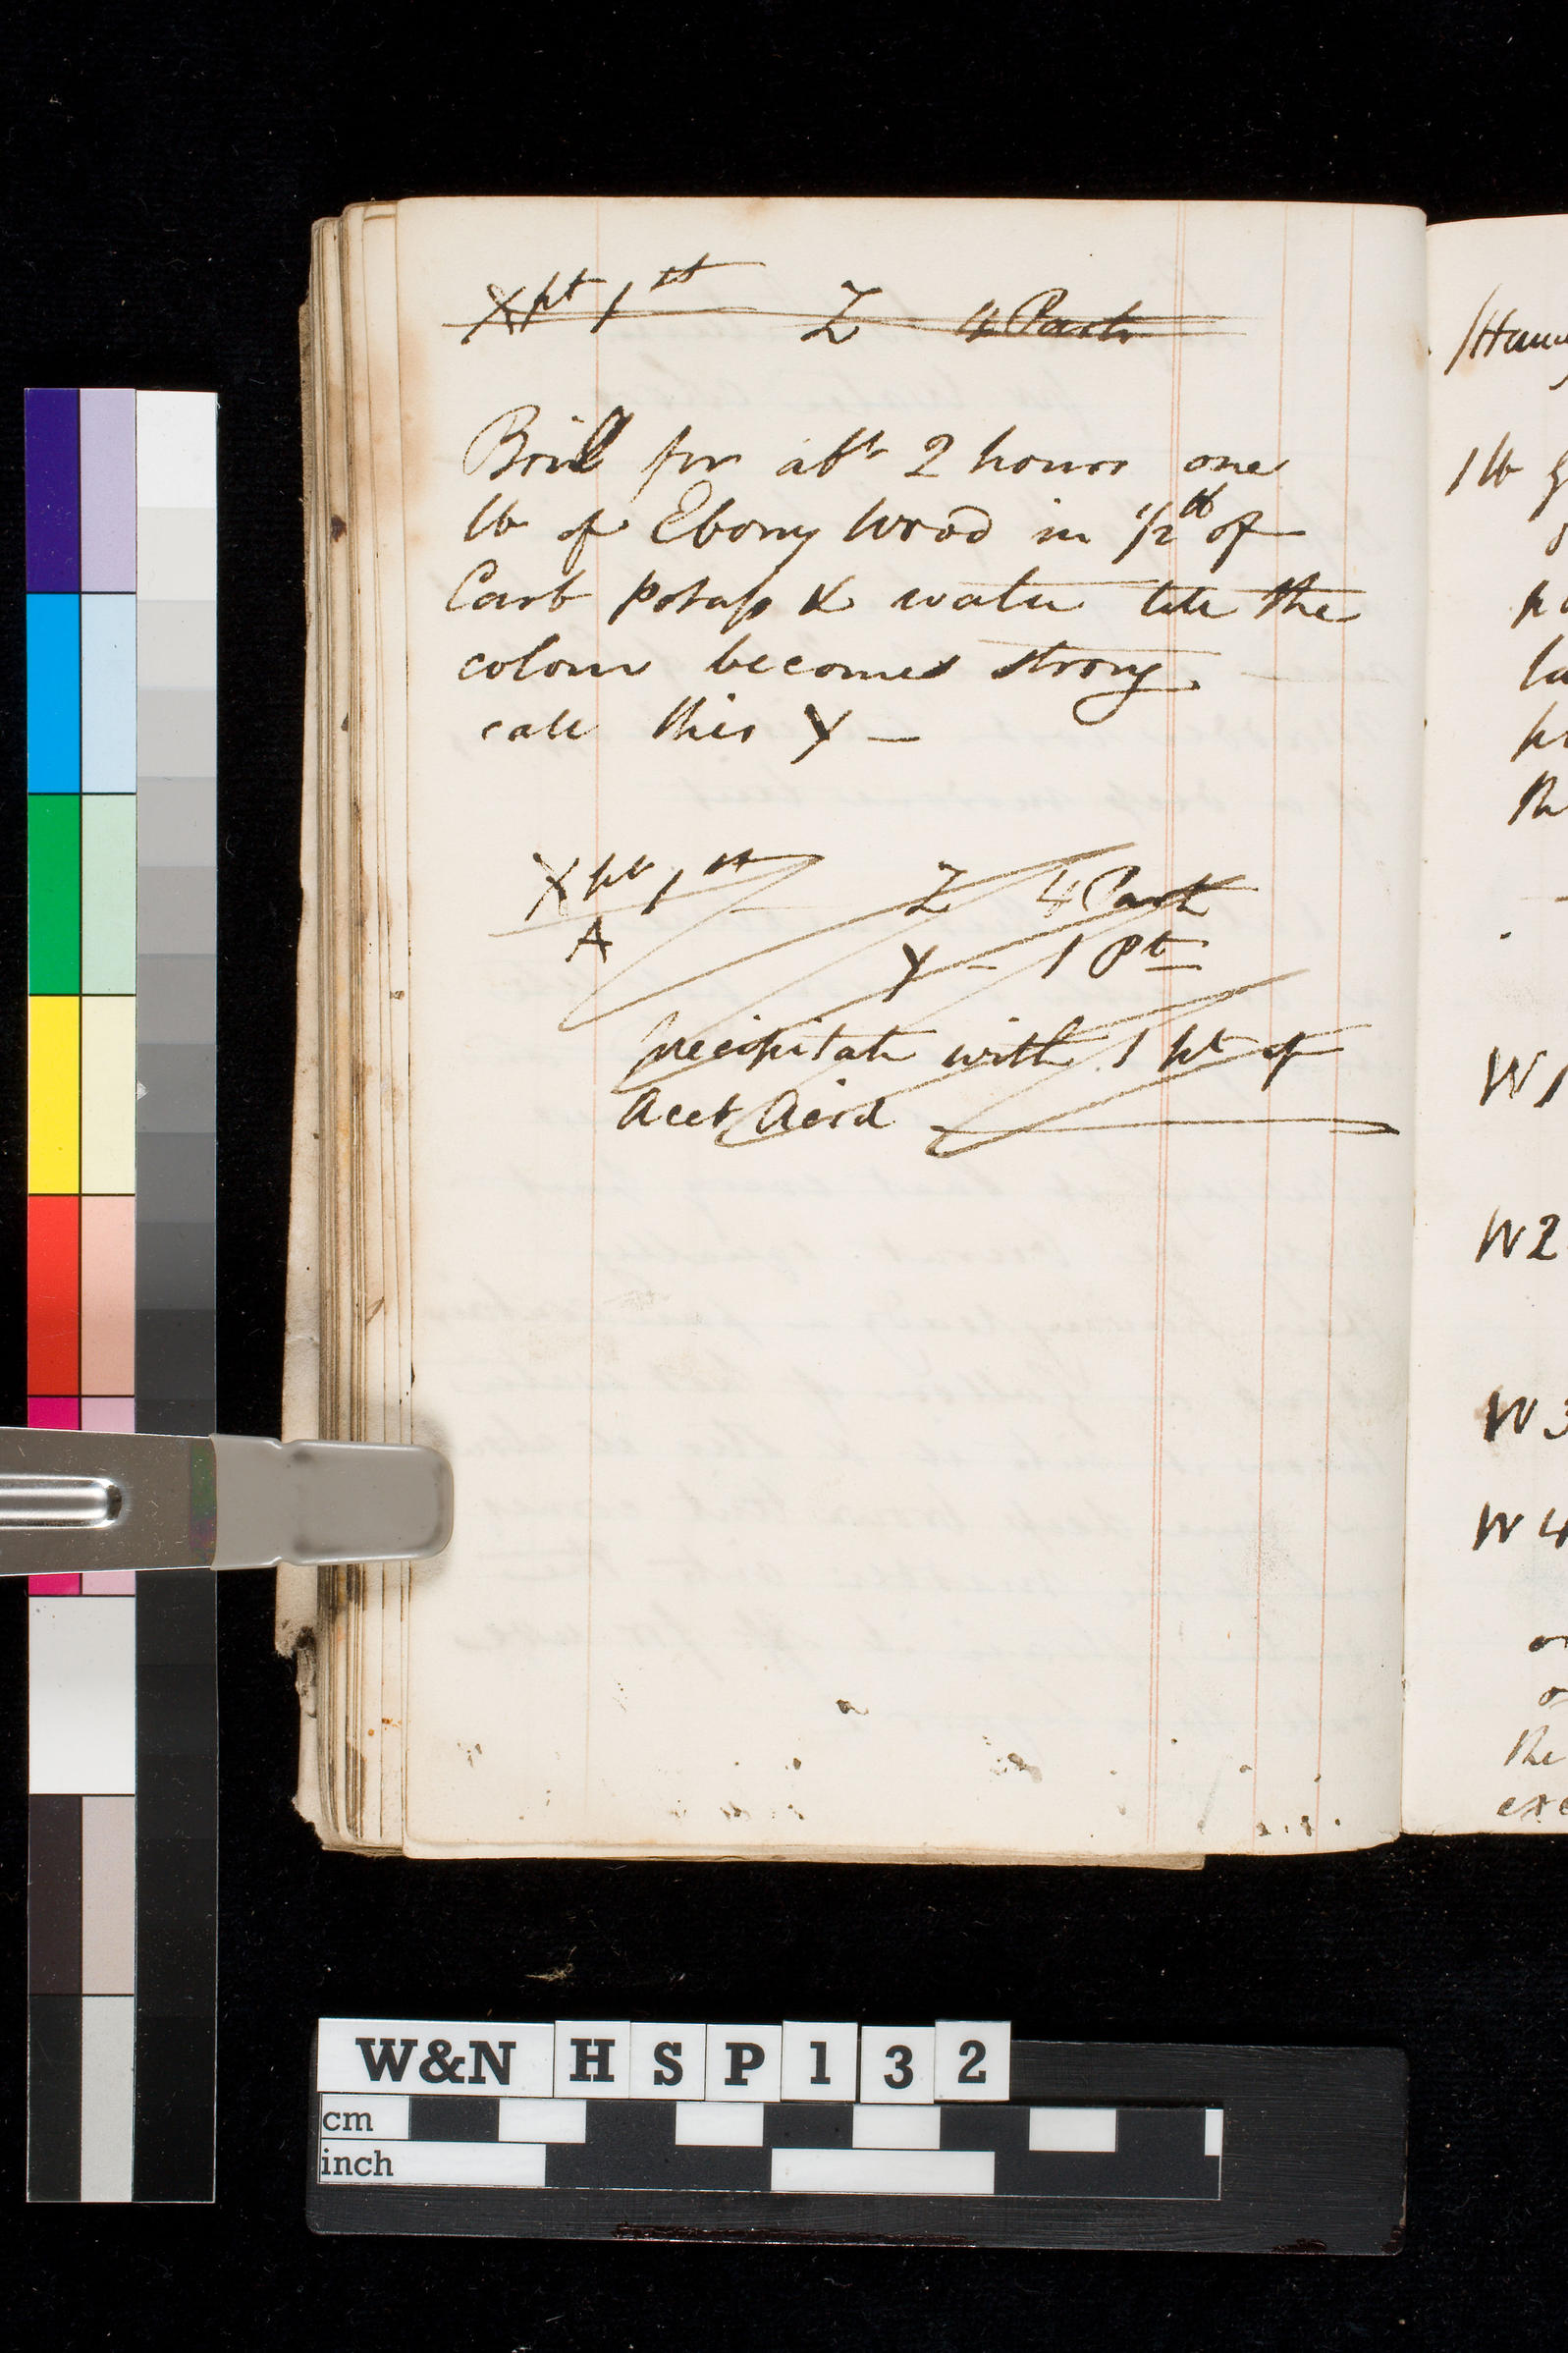 Xpt 1st Z 4 Parts
Boil for abt 2 hours one
lb of Ebony Wood in 1/2 lb of
Carb potash & water till the
colour becomes strong
call this Y —
Xpt 1st Z 4 Parts
A Y - 1 Pt
precipitate with 1 pt of
Acet Acid
1 lb
W1
W2
W3
W4
the
W&N HSP132
cm
inch